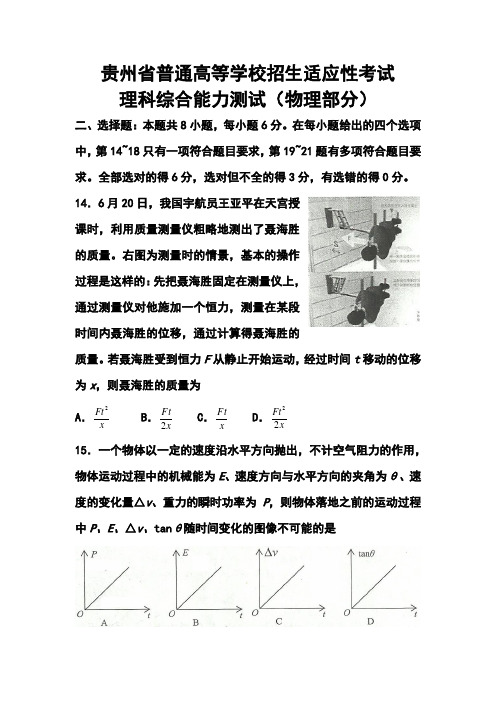 贵州省普通高等学校招生适应性考试
理科综合能力测试（物理部分）
二、选择题：本题共8小题，每小题6分。在每小题给出的四个选项
中，第14~18只有一项符合题目要求，第19~21题有多项符合题目要
求。全部选对的得6分，选对但不全的得3分，有选错的得0分。
14．6月20日，我国宇航员王亚平在天宫授
课时，利用质量测量仪粗略地测出了聂海胜
的质量。右图为测量时的情景，基本的操作
过程是这样的：先把聂海胜固定在测量仪上，
通过测量仪对他施加一个恒力，测量在某段
时间内聂海胜的位移，通过计算得聂海胜的
质量。若聂海胜受到恒力F从静止开始运动，经过时间t移动的位移
为x，则聂海胜的质量为
A．Ft²/x B．Ft/2x C．Ft/x D．Ft²/2x
15．一个物体以一定的速度沿水平方向抛出，不计空气阻力的作用，
物体运动过程中的机械能为E、速度方向与水平方向的夹角为θ、速
度的变化量△v、重力的瞬时功率为P，则物体落地之前的运动过程
中P、E、△v、tanθ随时间变化的图像不可能的是
P E Δv tanθ
O t O t O t O t
A B C D